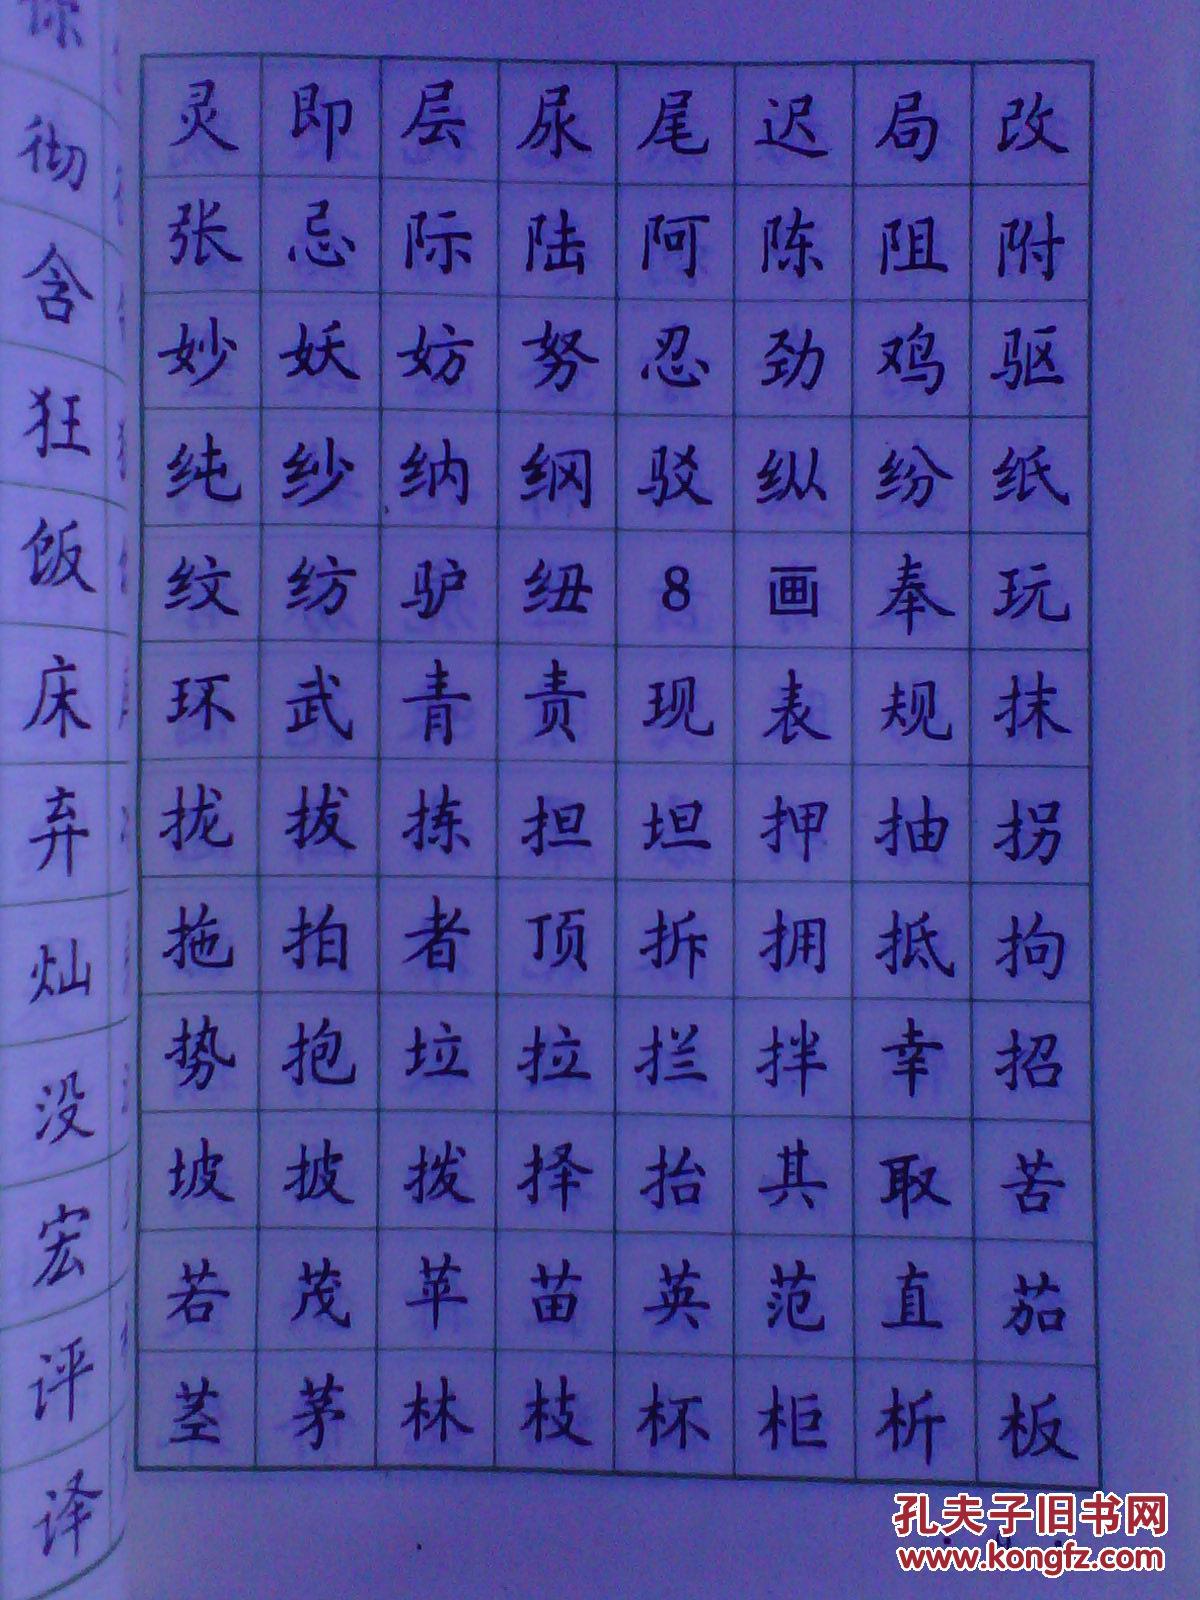 彻
含
狂
饭
床
弃
灿
没
宏
评
译
灵即层尿尾迟局改
张忌际陆阿陈阻附
妙妖妨努忍劲鸡驱
纯纱纳纲驳纵纷纸
纹纺驴纽8画奉玩
环武青责现表规抹
拢拔拣担坦押抽拐
拖拍者顶拆拥抵拘
势抱垃拉拦拌幸招
坡披拨择抬其取苦
若茂苹苗英范直茄
茎茅林枝杯柜析板
孔夫子旧书网
www.kongfz.com